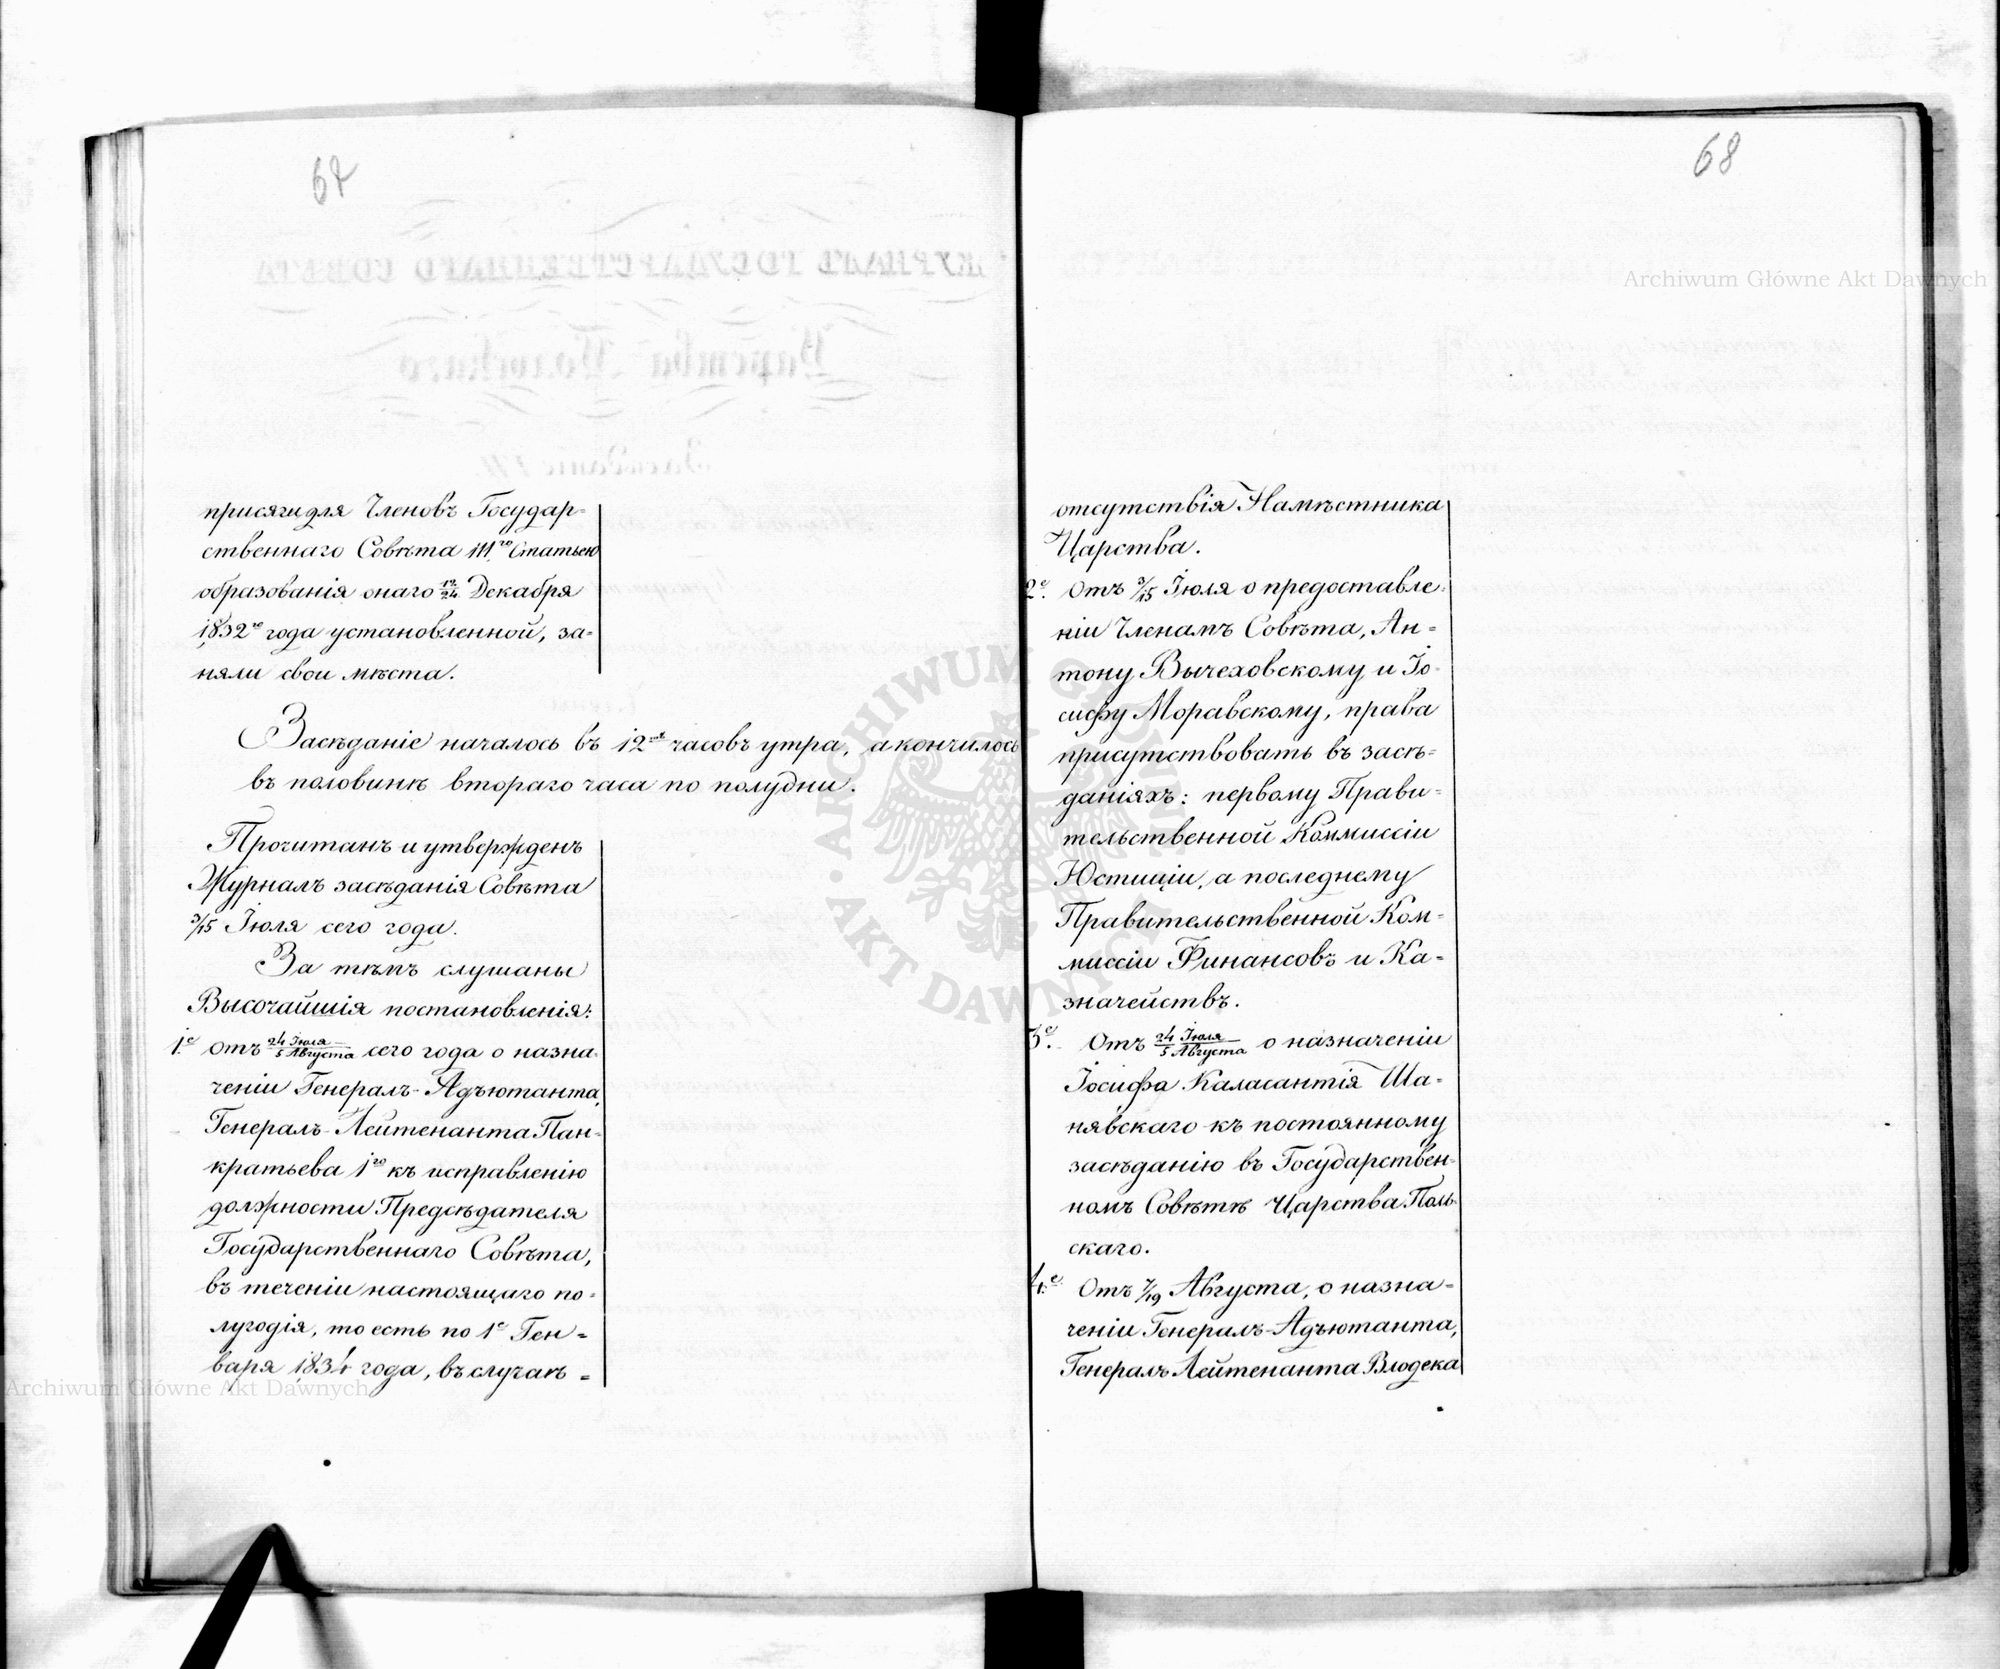 67
присяги для Членовъ Государ=
ственнаго Совѣта 111го Статьею
образованія онаго 12/24 Декабря
1832го года установленной, за=
няли свои мѣста.
Засѣданіе началось въ 12ть часовъ утра, а кончилось
въ половинѣ втораго часа по полудни.
Прочитанъ и утвержденъ
Журналъ засѣданія Совѣта
3/15 Іюля сего года.
За тѣмъ слушаны
Высочайшія постановленія:
1.е Отъ 24 Іюля / 5 Августа сего года о назна=
ченіи Генералъ-Адъютанта,
Генералъ-Лейтенанта Пан=
кратьева 1го къ исправленію
должности Предсѣдателя
Государственнаго Совѣта,
въ теченіи настоящаго по=
лугодія, то есть по 1е Ген=
варя 1834 года, въ случаѣ=
68
отсутствія Намѣстника
Царства.
2.е Отъ 3/15 Іюля о предоставле=
ніи Членамъ Совѣта, Ан=
тону Вычеховскому и Іо=
сифу Моравскому, права
присутствовать въ засѣ=
даніяхъ: первому Прави=
тельственной Коммиссіи
Юстиціи, а последнему
Правительственной Ком=
миссіи Финансовъ и Ка=
значействъ.
3.е Отъ 24 Іюля / 5 Августа о назначеніи
Іосифа Каласантія Ша=
нявскаго къ постоянному
засѣданію въ Государствен=
номъ Совѣтѣ Царства Поль=
скаго.
4.е Отъ 7/19 Августа, о назна=
ченіи Генералъ-Адъютанта,
Генералъ Лейтенанта Влодека
Archiwum Główne Akt Dawnych
Archiwum Główne Akt Dawnych
ARCHIWUM GŁÓWNE AKT DAWNYCH